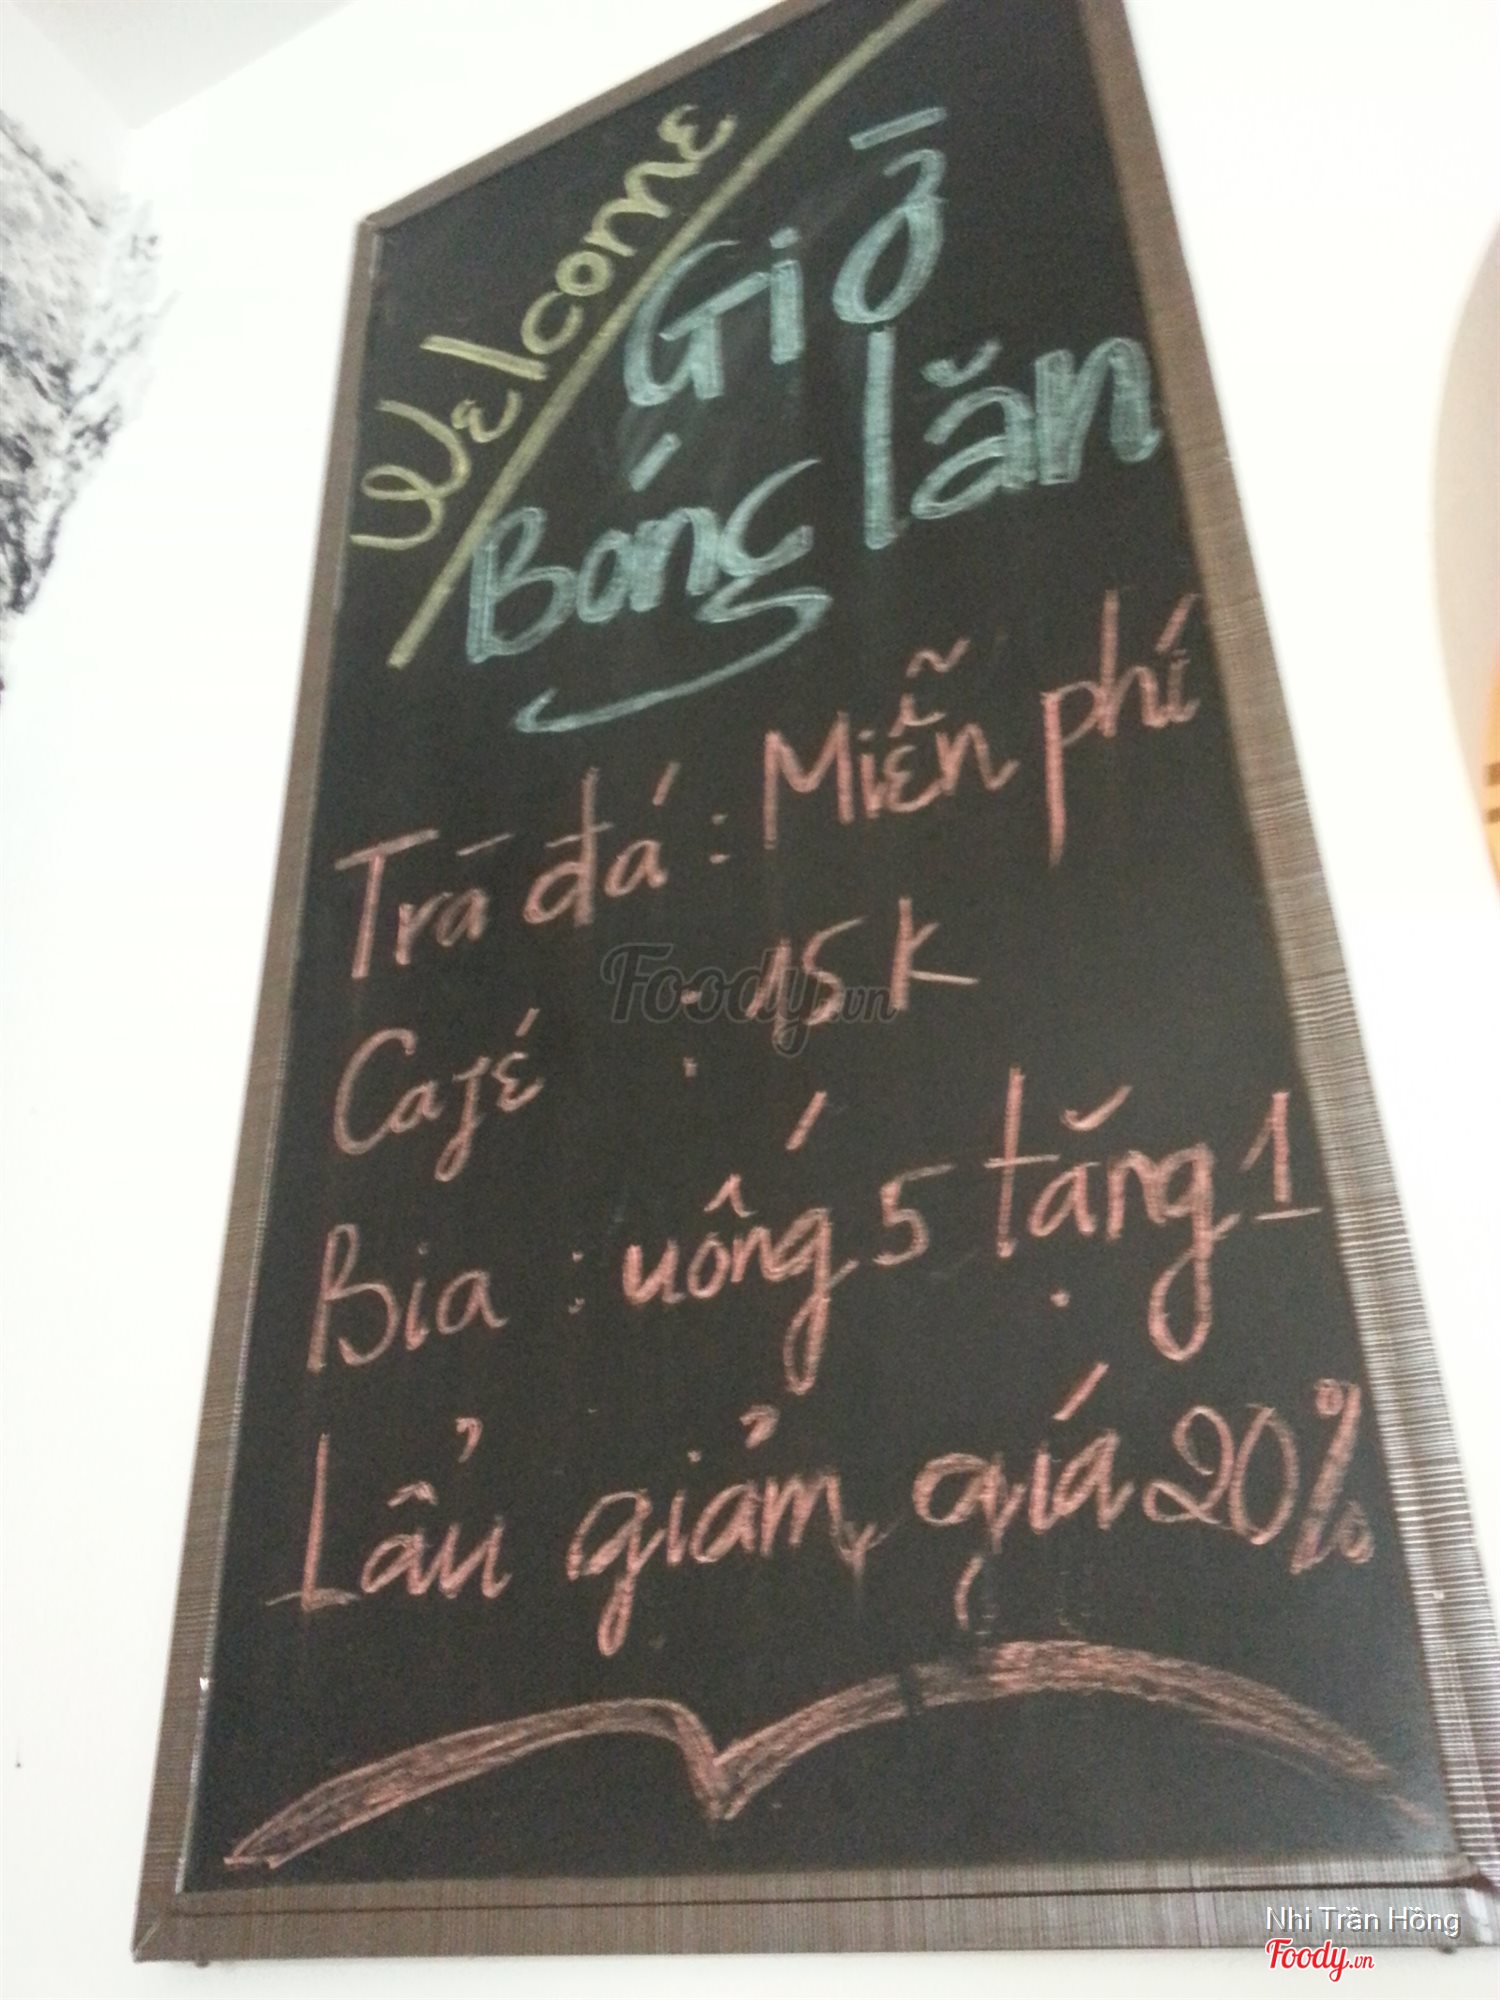 Welcome
Giỏ
Bóng lăn
Trà đá : Miễn phí
Café : 15K
Bia : uống 5 tặng 1
Lẩu giảm giá 20%
Foody.vn
Nhi Trần Hồng
Foody.vn